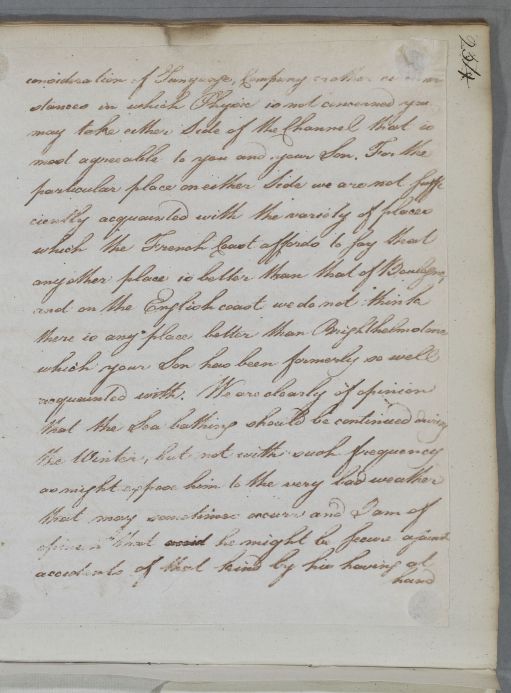 234
consideration of Language, Company or other circum
stances in which Physic is not concerned you
may take either Side of the Channel that is
most agreeable to you and your Son. For the
particular place on either Side we are not suffi
ciently acquainted with the variety of places
which the French Coast affords to say that
any other place is better than that of Boulogne,
and on the English coast we do not think
there is any place better than Brighthelmstone
which your Son has been formerly so well
acquainted with. We are clearly of opinion
that the Sea bathing should be continued during
the Winter, but not with such frequency
as might expose him to the very bad weather
that may sometimes occurr and I am of
opinion that he might be secure against
accidents of that kind by his having at
hand